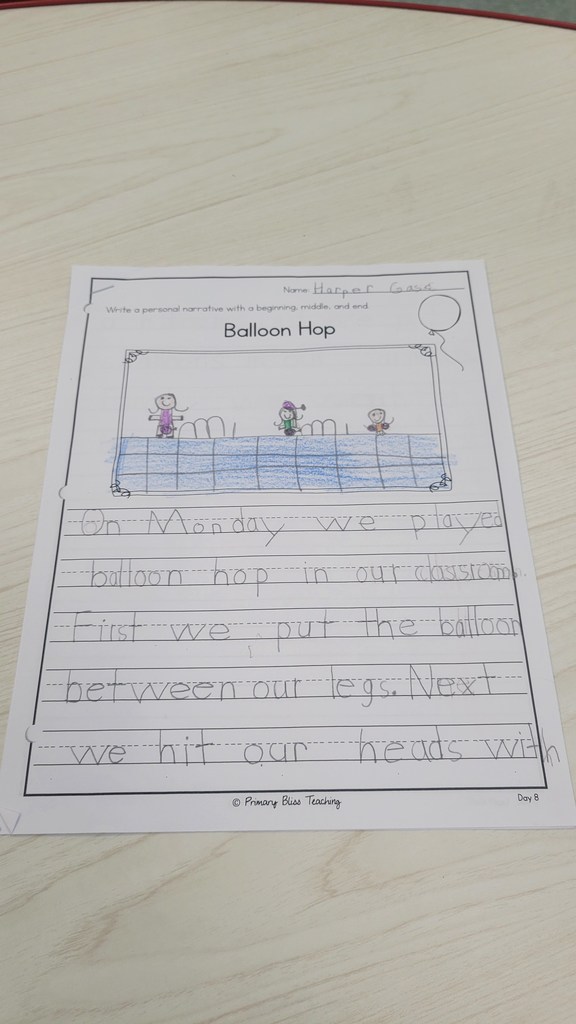 Name: Harper
Write a personal narrative with a beginning, middle, and end.
Balloon Hop
On Monday we played
balloon hop in our classroom.
First we put the balloon
between our legs. Next
we hit our heads with
© Primary Bliss Teaching
Day 8